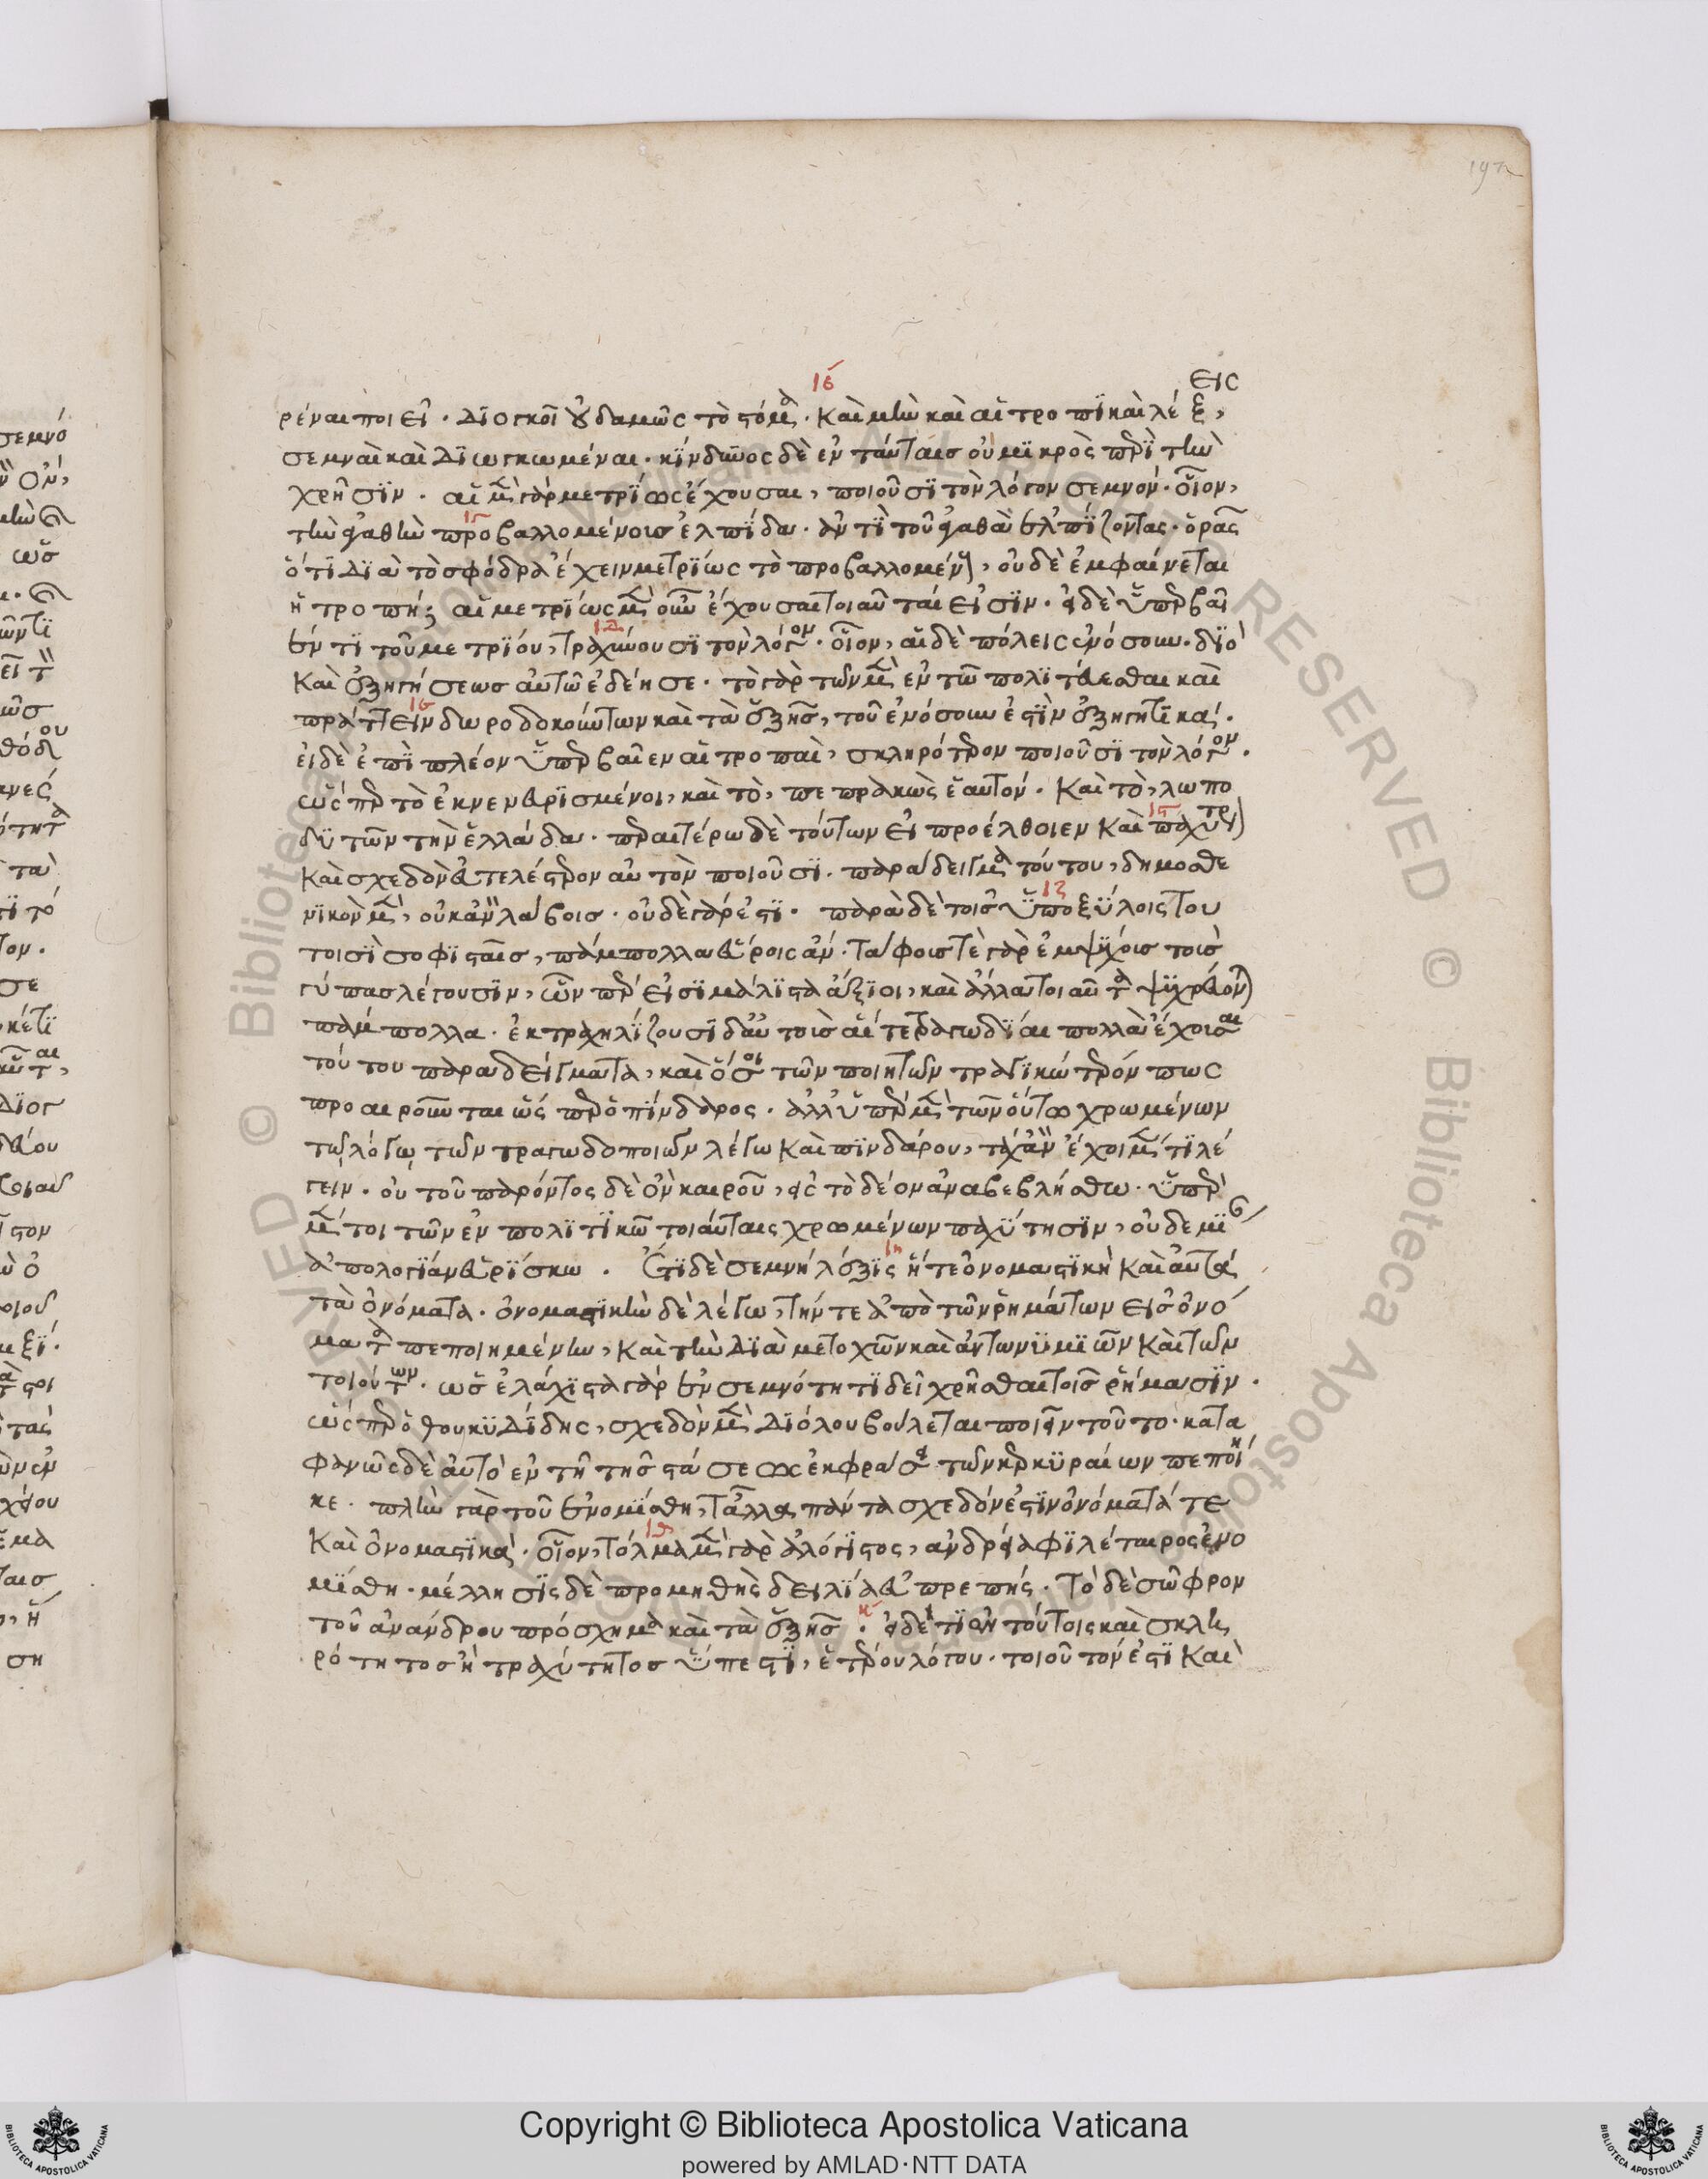 197
ιε
ρέναι ποιεῖ. διογκοῖ οὐδαμῶς τὸ στόμα. καὶ μὴν καὶ αἱ τροπικαὶ λέξεις,
σεμναὶ καὶ διωγκωμέναι. κίνδυνος δὲ ἐν ταύταις οὐ μικρὸς περὶ τὴν
χρῆσιν. αἱ μὲν γὰρ μετρίως ἔχουσαι, ποιοῦσι τὸν λόγον σεμνόν. οἷον,
τὴν ἀγαθὴν προβαλλομένους ἐλπίδα. ἀντὶ τοῦ ἀγαθὰ ἐλπίζοντας. ὁρᾷς
ὅτι διὰ τὸ σφόδρα ἔχειν μετρίως τὸ προβαλλομένη, οὐδὲ ἐμφαίνεται
ἡ τροπή; αἱ μετρίως μὲν οὖν ἔχουσαι τοιαῦταί εἰσιν. εἰ δὲ ὑπερβαῖ
έν τι τοῦ μετρίου, τραχύνουσι τὸν λόγον. οἷον, αἱ δὲ πόλεις ἐνόσουν. διὸ
καὶ ἐξηγήσεως αὐτῷ ἐδέησε. τὸ γὰρ τῶν μὲν ἐν τῷ πολιτεύεσθαι καὶ
πράττειν δωροδοκούντων καὶ τὰ ἑξῆς, τοῦ ἐνόσουν ἐστὶν ἐξηγητικά.
εἰ δὲ ἐπὶ πλέον ὑπερβαῖεν αἱ τροπαὶ, σκληρότερον ποιοῦσι τὸν λόγον.
ὥσπερ τὸ ἐκνενευρισμένοι, καὶ τὸ, πεπρακὼς ἑαυτόν. καὶ τὸ, λωπο
δυτῶν τὴν ἑλλάδα. περαιτέρω δὲ τούτων εἰ προέλθοιεν καὶ παχύτερον
καὶ σχεδὸν εὐτελέστερον αὐτὸν ποιοῦσι. παράδειγμα τούτου, δημοσθε
νικὸν μὲν, οὐκ ἂν λάβοις. οὐδὲ γάρ ἐστι. παρὰ δὲ τοῖς ὑποξύλοις του
τοισὶ σοφισταῖς, πάμπολλα εὕροις ἄν. τάφους τε γὰρ ἐμψύχους τοὺς
γύπας λέγουσιν, ὧνπερ εἰσὶ μάλιστα ἄξιοι, καὶ ἄλλα τοιαῦτα ψυχρεύονται
πάμπολλα. ἐκτραχηλίζουσι δ' αὐτοὺς αἵ τε τραγωδίαι πολλὰ ἔχουσαι
τούτου παραδείγματα, καὶ ὅσοι τῶν ποιητῶν τραγικώτερόν πως
προαιροῦνται ὥσπερ ὁ πίνδαρος. ἀλλ' ὑπὲρ μὲν τῶν οὕτω χρωμένων
τῷ λόγῳ τῶν τραγωδοποιῶν λέγω καὶ πινδάρου, τάχ' ἂν ἔχοιμέν τι λέ
γειν. οὐ τοῦ παρόντος δὲ ὂν καιροῦ, εἰς τὸ δέον ἀναβεβλήσθω. ὑπὲρ
μέντοι τῶν ἐν πολιτικῷ τοιαύταις χρωμένων παχύτησιν, οὐδεμίαν
ἀπολογίαν εὑρίσκω. ἔτι δὲ σεμνὴ λέξις ἥ τε ὀνομαστικὴ καὶ αὐτὰ
τὰ ὀνόματα. ὀνομαστικὴν δὲ λέγω, τήν τε ἀπὸ τῶν ῥημάτων εἰς ὀνό
ματα πεποιημένην, καὶ τὴν διὰ μετοχῶν καὶ ἀντωνυμιῶν καὶ τῶν
τοιούτων. ὡς ἐλάχιστα γὰρ ἐν σεμνότητι δεῖ χρῆσθαι τοῖς ῥήμασιν.
ὥσπερ ὁ θουκυδίδης, σχεδὸν μὲν διόλου βούλεται ποιεῖν τοῦτο. κατα
φανῶς δὲ αὐτὸ ἐν τῇ τῆς στάσεως ἐκφράσει τῶν κερκυραίων πεποίη
κε. πλὴν γὰρ τοῦ ἐνομίσθη, τἄλλα πάντα σχεδόν ἐστιν ὀνόματά τε
καὶ ὀνομαστικά. οἷον, τόλμα μὲν γὰρ ἀλόγιστος, ἀνδρεία φιλέταιρος ἐνο
μίσθη. μέλλησις δὲ προμηθὴς δειλία εὐπρεπής. τὸ δὲ σῶφρον
τοῦ ἀνάνδρου πρόσχημα καὶ τὰ ἑξῆς. εἰ δέ τι ἐν τούτοις καὶ σκλη
ρότητος ἢ τραχύτητος ὕπεστι, ἑτέρου λόγου. τοιοῦτόν ἐστι καὶ
Copyright © Biblioteca Apostolica Vaticana
powered by AMLAD·NTT DATA